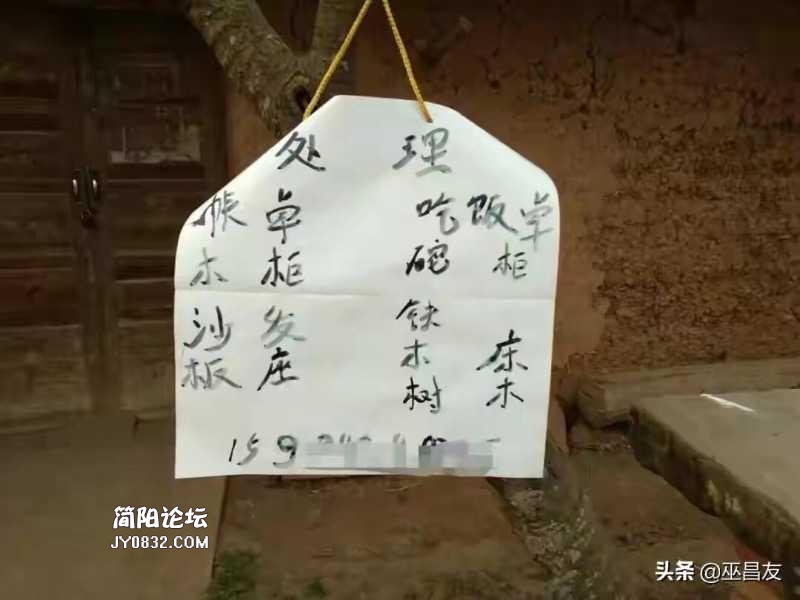 处理
帐卓 吃饭卓
木柜 碗柜
沙发 铁 床
板座 木 木
树
159
简阳论坛
JY0832.COM
头条 @巫昌友